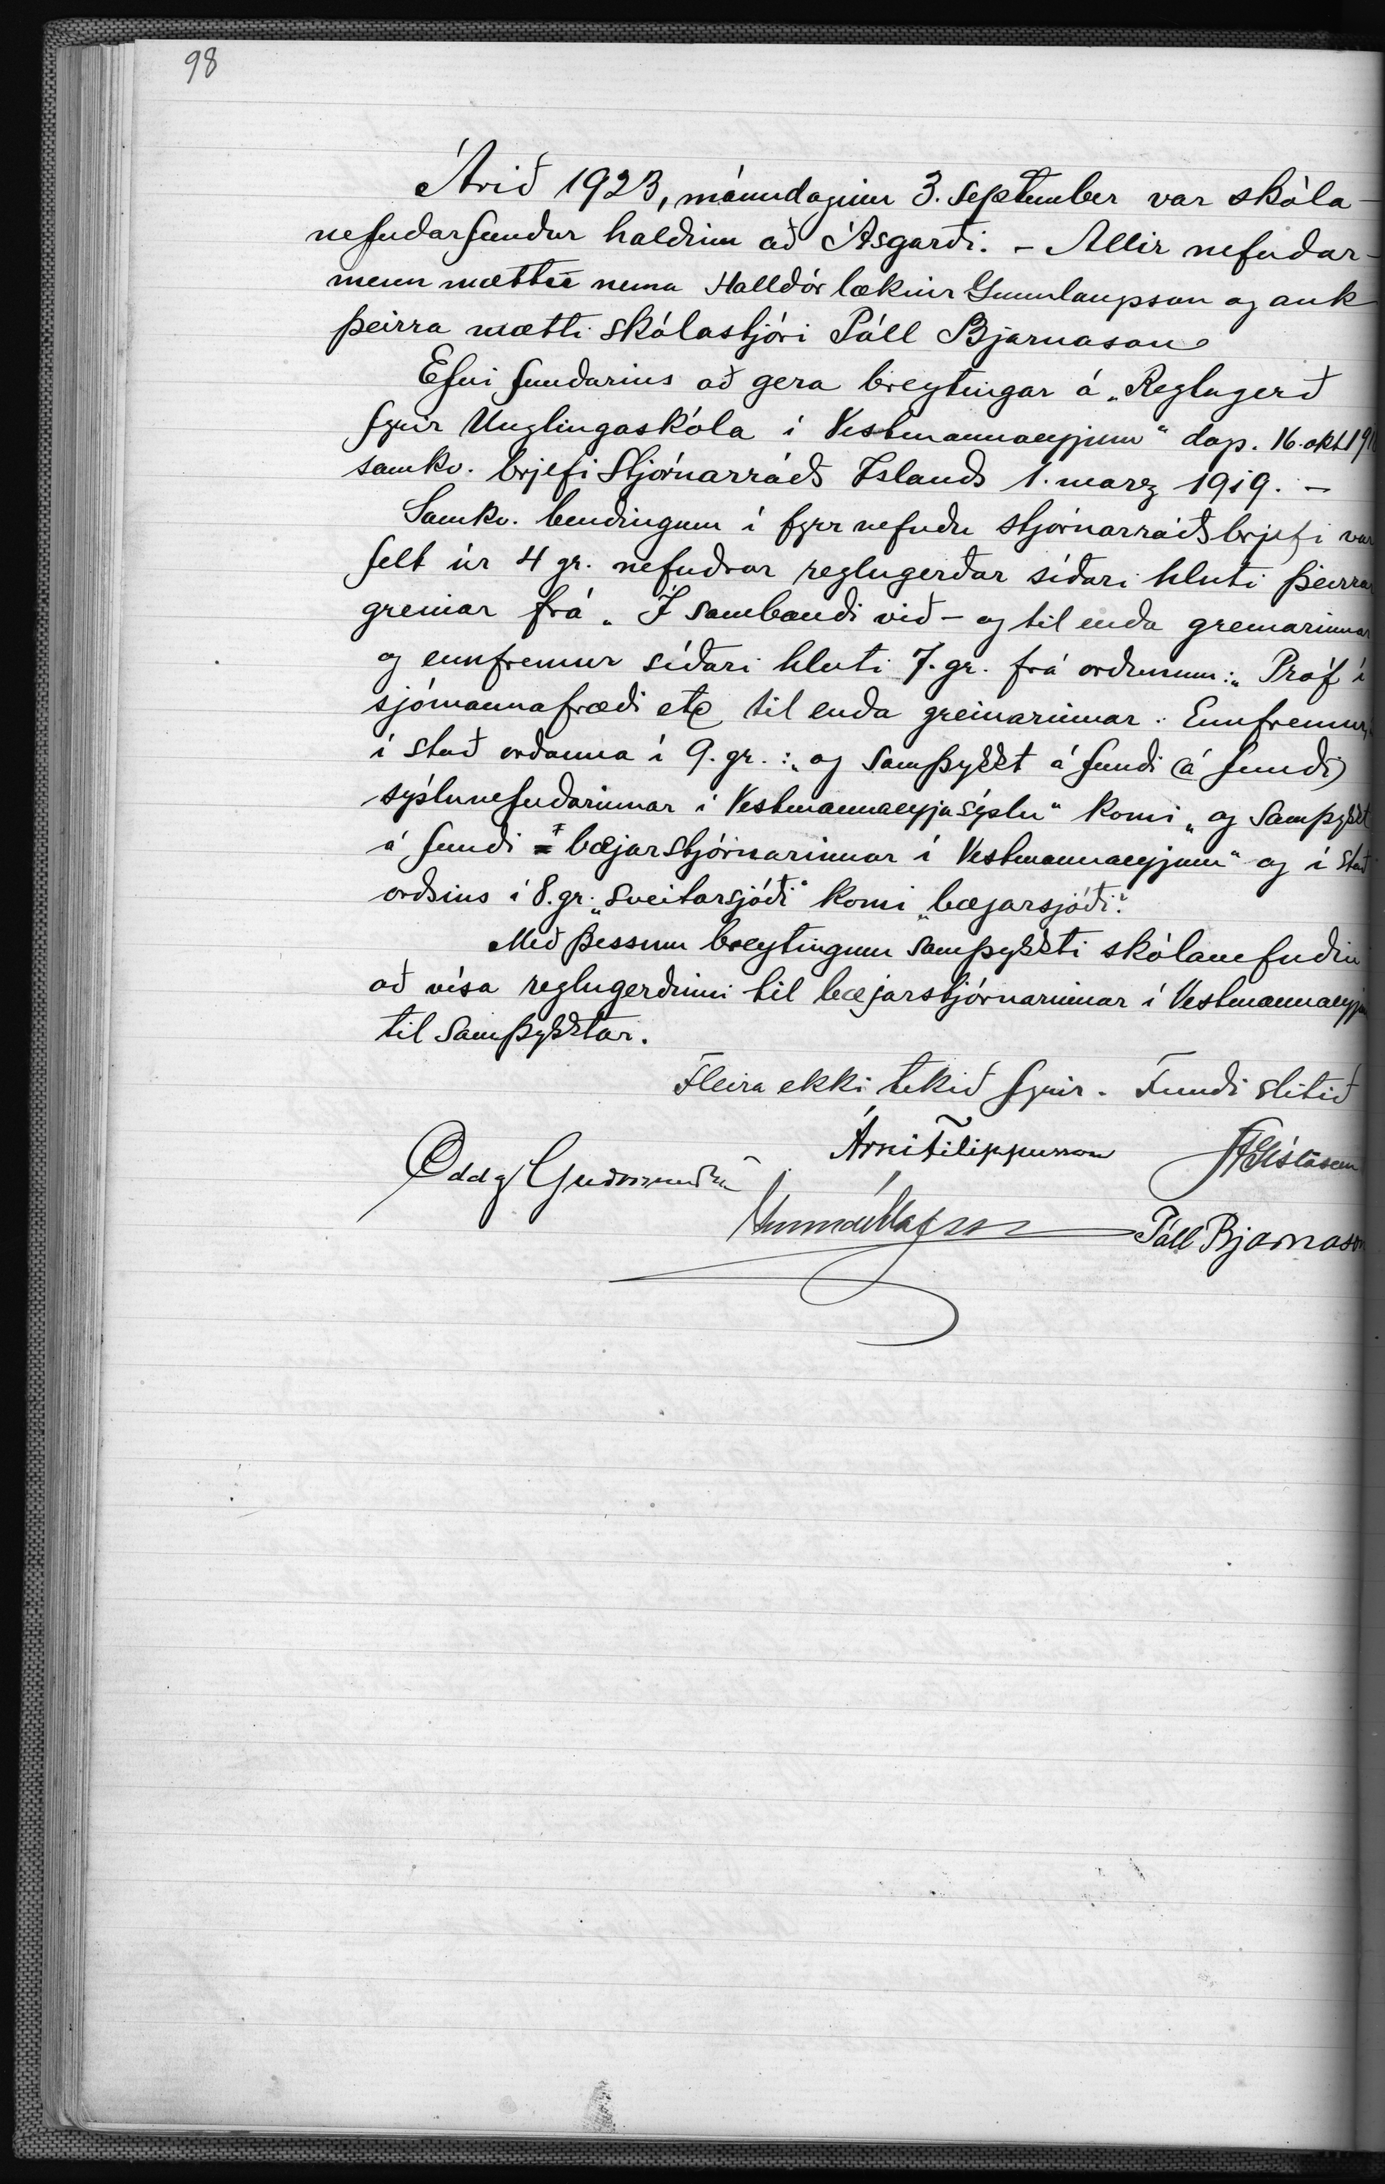 98
Árið 1923, mánudaginn 3. september var skóla-
nefndarfundur haldinn að Ásgarði. - Allir nefndar-
menn mættu nema Halldór læknir Gunnlaugsson og auk
þeirra mætti skólastjóri Páll Bjarnason
Efni fundarins að gera breytingar á „Reglugerð
fyrir Unglingaskóla í Vestmannaeyjum“ dags. 16. okt. 191
samkv. brjefi Stjórnarráðs Íslands 1. marz 1919. -
Samkv. bendingum í fyrrnefndu stjórnarráðsbrjefi var
felt úr 4 gr. nefndrar reglugerðar síðari hluti þeirrar
greinar frá „Í sambandi við - og til enda greinarinnar
og ennfremur síðari hluti 7. gr. frá orðunum: „Próf í
sjómannafræði etc til enda greinarinnar. Ennfremur,
í stað orðanna í 9. gr.: „og samþykkt á fundi (á fundi)
sýslunefndarinnar í Vestmannaeyjasýslu“ komi „og samþykkt
á fundi bæjarstjórnarinnar í Vestmannaeyjum“ og í stað
orðsins í 8. gr. „sveitarsjóði“ komi „bæjarsjóði“.
Með þessum breytingum samþykkti skólanefndin
að vísa reglugerðinni til bæjarstjórnarinnar í Vestmannaeyjum
til samþykktar.
Fleira ekki tekið fyrir. Fundi slitið
Árni Filippusson JÞGíslason
Oddg Guðmundss
Gunnar Ólafsson Páll Bjarnason